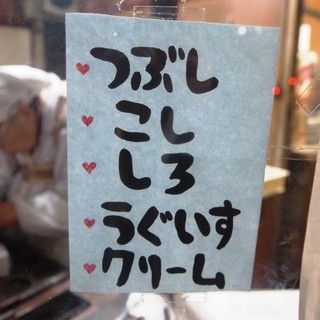 つぶし
こし
しろ
うぐいす
クリーム